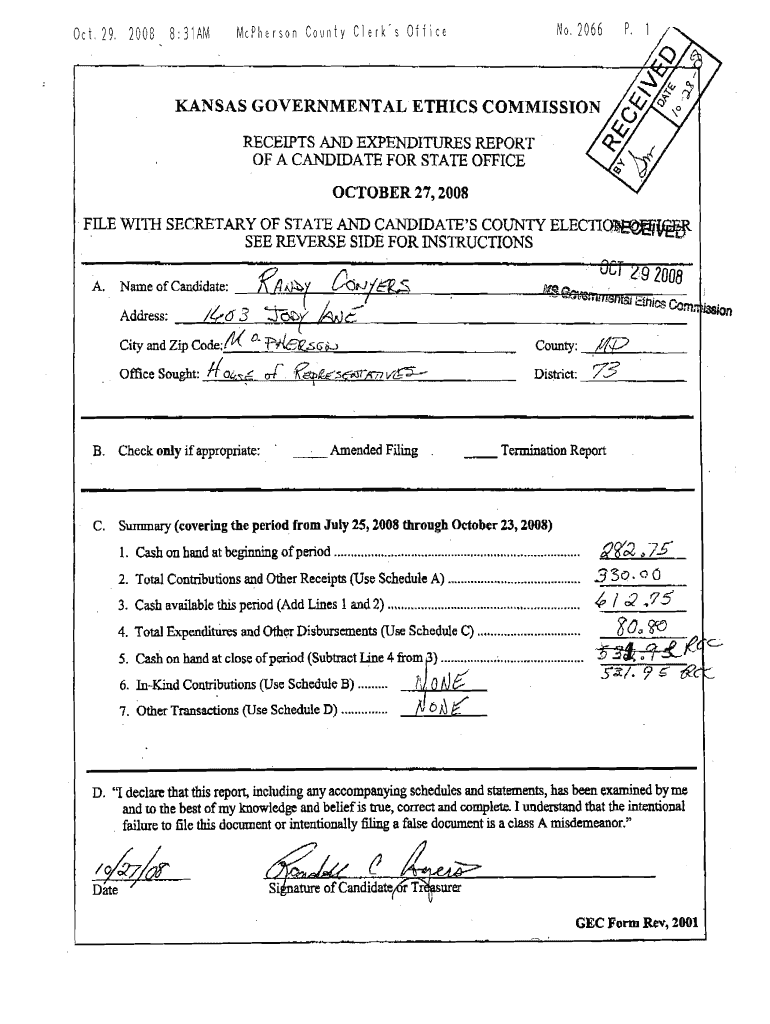 Oct. 29. 2008 8:31AM McPherson County Clerk's Office No. 2066 P. 1
RECEIVED
DATE 10-28-08
BY
KANSAS GOVERNMENTAL ETHICS COMMISSION
RECEIPTS AND EXPENDITURES REPORT
OF A CANDIDATE FOR STATE OFFICE
OCTOBER 27, 2008
FILE WITH SECRETARY OF STATE AND CANDIDATE'S COUNTY ELECTION OFFICER
RECEIVED
SEE REVERSE SIDE FOR INSTRUCTIONS
OCT 29 2008
KS Governmental Ethics Commission
A. Name of Candidate: RANDY CONYERS
Address: 1403 JODY LANE
City and Zip Code: McPHERSON County: MP
Office Sought: HOUSE of REPRESENTATIVES District: 73
B. Check only if appropriate: ____ Amended Filing ____ Termination Report
C. Summary (covering the period from July 25, 2008 through October 23, 2008)
1. Cash on hand at beginning of period ........ 282.75
2. Total Contributions and Other Receipts (Use Schedule A) ........ 330.00
3. Cash available this period (Add Lines 1 and 2) ........ 612.75
4. Total Expenditures and Other Disbursements (Use Schedule C) ........ 80.80
5. Cash on hand at close of period (Subtract Line 4 from 3) ........ RCC
531.95 RCC
6. In-Kind Contributions (Use Schedule B) ......... NONE
7. Other Transactions (Use Schedule D) .............. NONE
D. "I declare that this report, including any accompanying schedules and statements, has been examined by me
and to the best of my knowledge and belief is true, correct and complete. I understand that the intentional
failure to file this document or intentionally filing a false document is a class A misdemeanor."
10/27/08 Randall C Conyers
Date Signature of Candidate or Treasurer
GEC Form Rev, 2001